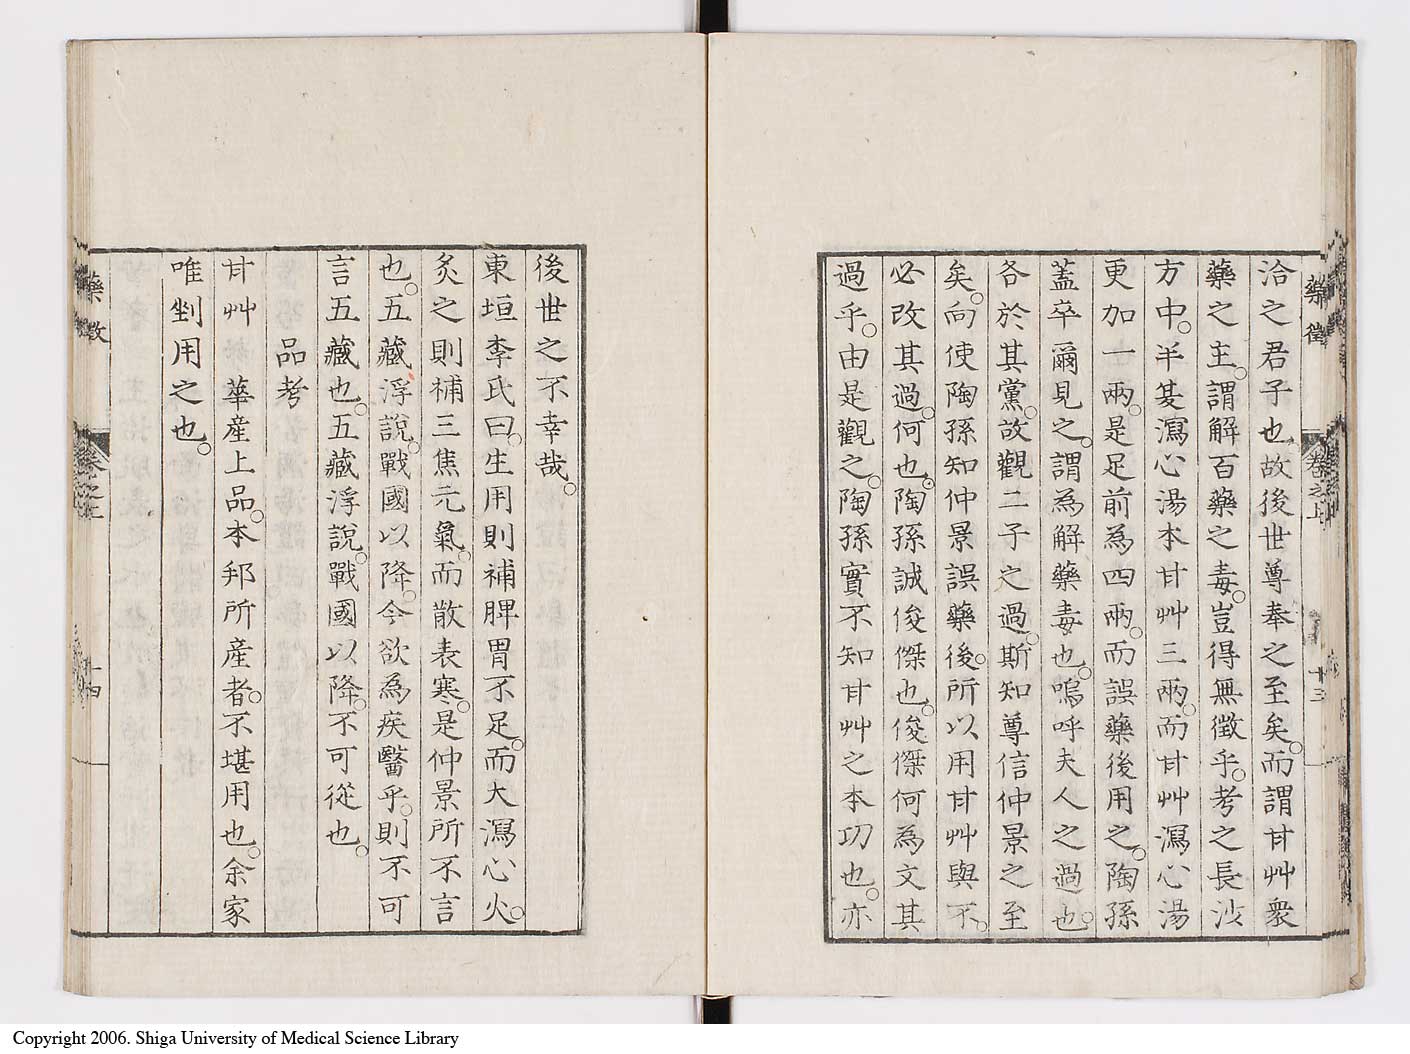 藥徵 卷之上 十三
洽之君子也故後世尊奉之至矣。而謂甘艸衆
藥之主。謂解百藥之毒。豈得無徵乎。考之長沙
方中。半夏瀉心湯本甘艸三兩。而甘艸瀉心湯
更加一兩。是足前為四兩。而誤藥後用之。陶孫
蓋卒爾見之。謂為解藥毒也。嗚呼夫人之過也。
各於其黨。故觀二子之過。斯知尊信仲景之至
矣。向使陶孫知仲景誤藥後。所以用甘艸與不。
必改其過。何也。陶孫誠俊傑也。俊傑何為文其
過乎。由是觀之。陶孫實不知甘艸之本功也。亦
後世之不幸哉。
東垣李氏曰。生用則補脾胃不足。而大瀉心火。
炙之則補三焦元氣。而散表寒。是仲景所不言
也。五藏浮說。戰國以降。今欲為疾醫乎。則不可
言五藏也。五藏浮說。戰國以降。不可從也。
品考
甘艸 華産上品。本邦所産者。不堪用也。余家
唯剉用之也。
藥徵 卷之上 十四
Copyright 2006. Shiga University of Medical Science Library